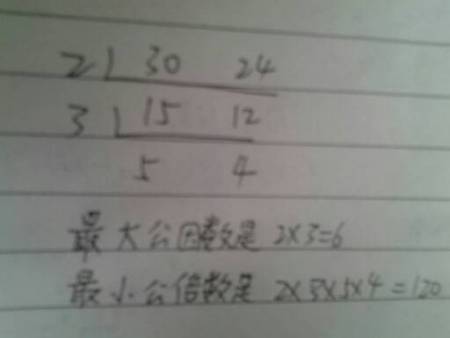 2 30 24
3 15 12
5 4
最大公因数是 2×3=6
最小公倍数是 2×3×5×4=120